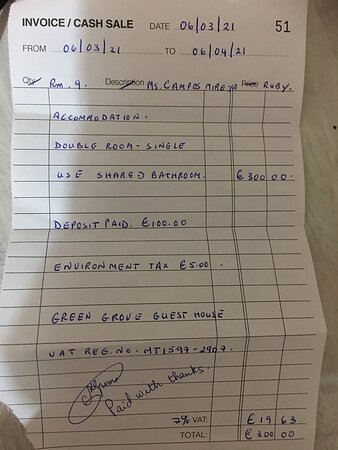 INVOICE / CASH SALE DATE 06/03/21 51
FROM 06/03/21 TO 06/04/21
Qty Rm. 9. Description Ms. CAMPOS MIREYA Price RUBY.
ACCOMMODATION.
DOUBLE ROOM - SINGLE
USE SHARED BATHROOM. €300 00.
DEPOSIT PAID. €100.00
ENVIRONMENT TAX €5.00.
GREEN GROVE GUEST HOUSE
VAT REG. NO. MT1597-2907.
Paid with thanks.
7% VAT: €19 63
TOTAL: €300 00